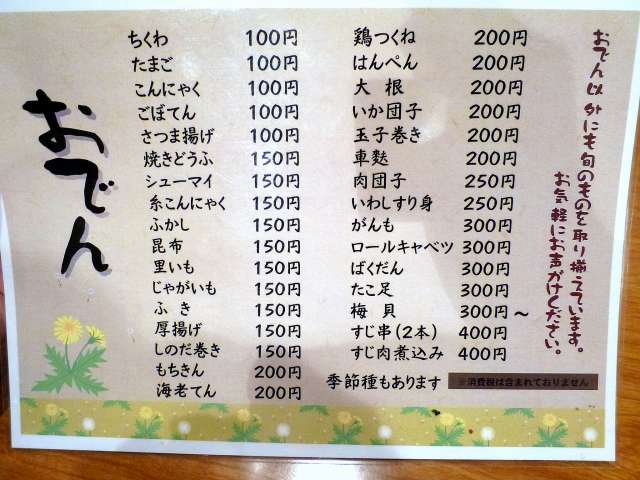 おでん
ちくわ 100円
たまご 100円
こんにゃく 100円
ごぼてん 100円
さつま揚げ 100円
焼きどうふ 150円
シューマイ 150円
糸こんにゃく 150円
ふかし 150円
昆布 150円
里いも 150円
じゃがいも 150円
ふき 150円
厚揚げ 150円
しのだ巻き 150円
もちきん 200円
海老てん 200円
鶏つくね 200円
はんぺん 200円
大根 200円
いか団子 200円
玉子巻き 200円
車麩 200円
肉団子 250円
いわしすり身 250円
がんも 300円
ロールキャベツ 300円
ばくだん 300円
たこ足 300円
梅貝 300円～
すじ串(2本) 400円
すじ肉煮込み 400円
季節種もあります
※消費税は含まれておりません
おでん以外にも旬のものを取り揃えています。
お気軽にお声がけください。